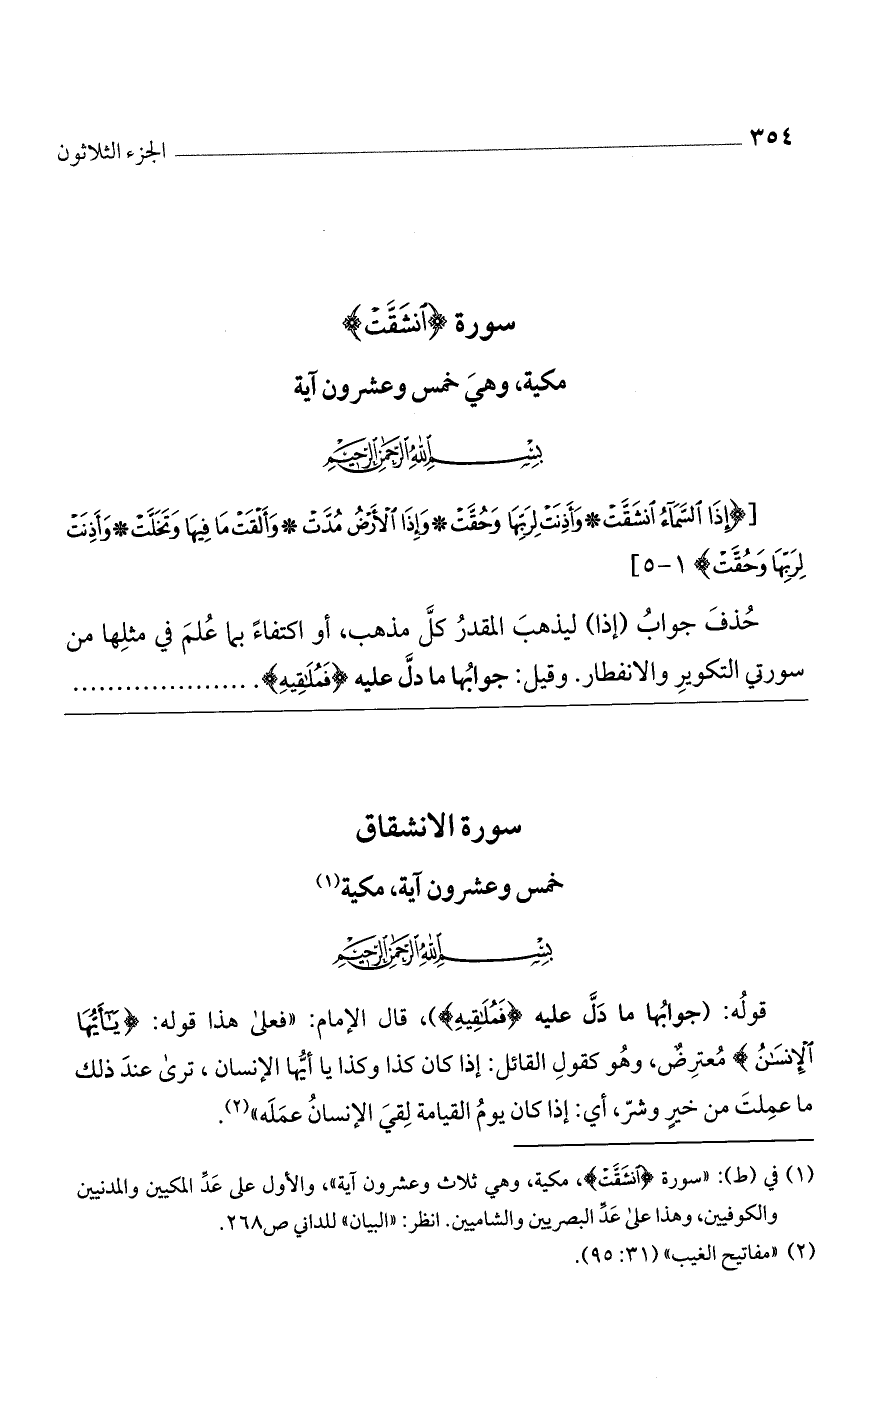 ٣٥٤ الجزء الثلاثون
سورة ﴿ٱنشَقَّتْ﴾
مكية، وهيَ خمس وعشرون آية
بِسْمِ ٱللَّهِ ٱلرَّحْمَٰنِ ٱلرَّحِيمِ
[﴿إِذَا ٱلسَّمَآءُ ٱنشَقَّتْ * وَأَذِنَتْ لِرَبِّهَا وَحُقَّتْ * وَإِذَا ٱلْأَرْضُ مُدَّتْ * وَأَلْقَتْ مَا فِيهَا وَتَخَلَّتْ * وَأَذِنَتْ
لِرَبِّهَا وَحُقَّتْ﴾ ١-٥]
حُذفَ جوابُ (إذا) ليذهبَ المقدرُ كلَّ مذهب، أو اكتفاءً بما عُلمَ في مثلِها من
سورتي التكويرِ والانفطار. وقيل: جوابُها ما دلَّ عليه ﴿فَمُلَٰقِيهِ﴾. .....................
سورة الانشقاق
خمس وعشرون آية، مكية(١)
بِسْمِ ٱللَّهِ ٱلرَّحْمَٰنِ ٱلرَّحِيمِ
قولُه: (جوابُها ما دَلَّ عليه ﴿فَمُلَٰقِيهِ﴾)، قال الإمام: «فعلىٰ هذا قوله: ﴿يَٰٓأَيُّهَا
ٱلْإِنسَٰنُ﴾ مُعترِضٌ، وهُو كقولِ القائل: إذا كان كذا وكذا يا أيُّها الإنسان ، ترىٰ عندَ ذلك
ما عمِلتَ من خيرٍ وشرّ، أي: إذا كان يومُ القيامة لِقيَ الإنسانُ عمَلَه»(٢).
(١) في (ط): «سورة ﴿ٱنشَقَّتْ﴾، مكية، وهي ثلاث وعشرون آية»، والأول على عَدِّ المكيين والمدنيين
والكوفيين، وهذا علىٰ عَدِّ البصريين والشاميين. انظر: «البيان» للداني ص٢٦٨.
(٢) «مفاتيح الغيب» (٣١: ٩٥).